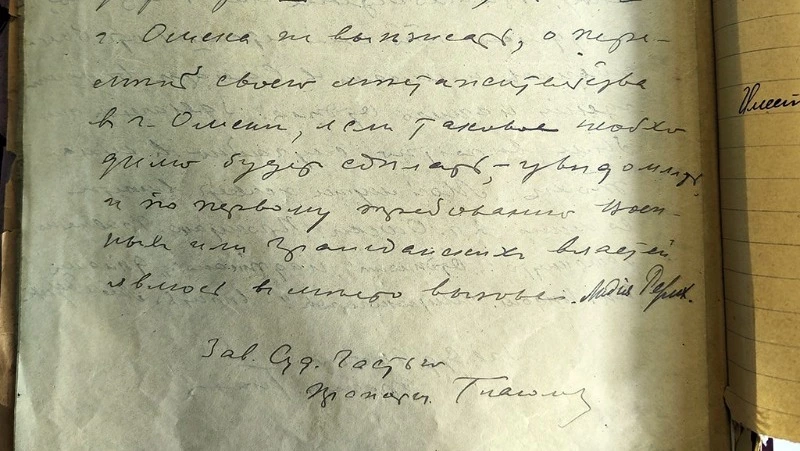 г. Омска не выезжать, о пере-
мене своего местожительства
в г. Омске, если таковое необхо
димо будет сделать, – уведомлять
и по первому требованию воен-
ных или гражданских властей
явлюсь в место вызова. Лидия Рерих.
Зав. Суд. Частью